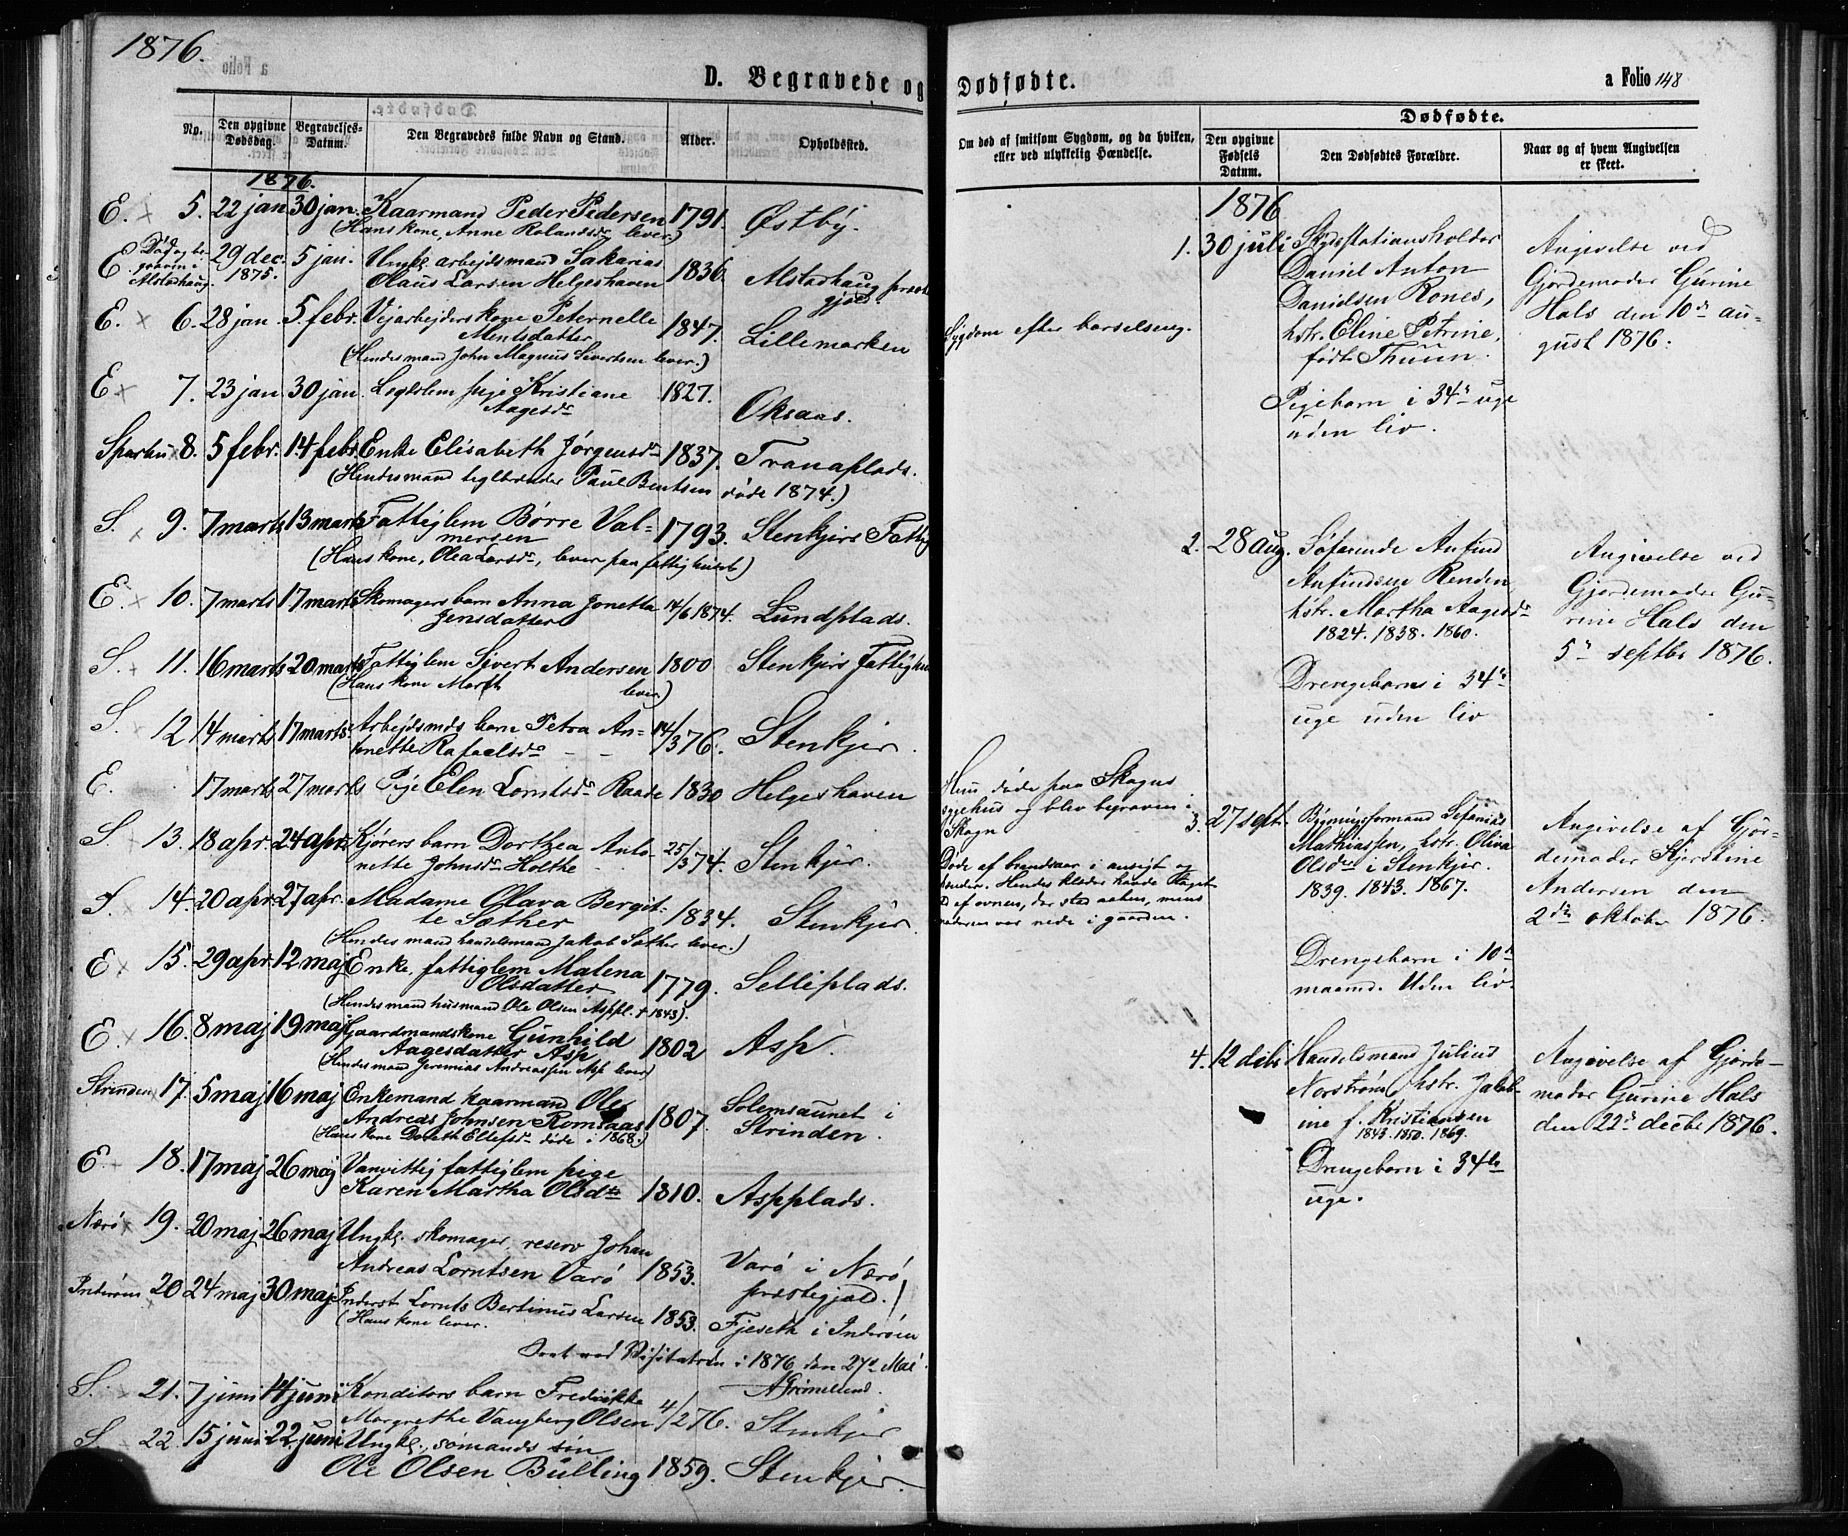 1876.
D. Begravede og Dødfødte.
a Folio 148
No.
Den opgivne Dødsdag.
Begravelses-Datum.
Den Begravedes fulde Navn og Stand.
Alder.
Opholdssted.
Om død af smitsom Sygdom, og da hvilken, eller ved ulykkelig Hændelse.
Dødfødte.
Den opgivne Fødsels Datum.
Den Dødfødtes Forældre.
Naar og af hvem Angivelsen er skeet.
1876.
E. 5. 22 jan 30 jan. Kaarmand Peder Pedersen 1791. Østby.
(Hans kone, Anne Rolandsdr lever)
E Død og begraven i Alstadhaug. 29 dec. 1875. 5 jan. Ungk. arbejdsmand Sakarias 1836. Alstadhaug præste
Olaus Larsen Helgeshaven gjeld
E. 6. 28 jan. 5 febr. Vejarbejders kone Peternelle 1847. Lillemarken
Mentsdatter
(Hendes mand John Magnus Sivertsen lever.)
Sygdom efter barselseng.
E 7. 23 jan 30 jan. Legdslem pige Kristiane 1827. Oksaas.
Aagesdr
Sparbu 8. 5 febr. 14 febr. Enke Elisabeth Jørgensdr 1837. Tranaplads.
(Hendes mand teglbrænder Paul Bentsen døde 1874.)
S. 9. 7 marts 13 marts Fattiglem Børre Val- 1793. Stenkjers Fattig
mersen
(Hans kone, Olea Larsdr, lever paa fattighuset)
E. 10. 7 marts 17 marts Skomagers barn Anna Jonetta 14/6 1874. Lundplads.
Jensdatter
S. 11. 16 marts 20 marts Fattiglem Sivert Andersen 1800 Stenkjers Fattighu
(Hans kone Marth lever)
S. 12 14 marts 17 marts Arbejdsmds barn Petra An- 14/376. Stenkjer.
tonette Rafaelsdr
E. 17 marts 27 marts Pige Elen Lorntsdr Raade 1830 Helgeshaven
Hun døde paa Skogns
sygehus og blev begraven i
Skogn
S. 13. 18 apr. 24 apr. Kjørers barn Dorthea Anto- 25/374. Stenkjer.
nette Johnsdr Holthe
Døde af brandsaar i ansigt og
hænder. Hendes klæder havde fænget
ild af ovnen, der stod aaben, mens
moderen var nede i gaarden.
S. 14. 20 apr. 27 apr. Madame Olava Bergit- 1834. Stenkjer.
te Sather
(Hendes mand handelsmand Jakob Sather lever.)
E 15. 29 apr. 12 maj Enke, fattiglem Malena 1779. Selliplads.
Olsdatter
(Hendes mand husmand Ole Olsen Asppl. † 1843).
E. 16. 8 maj 19 maj Gaardmandskone Gunhild 1802 Asp.
Aagesdatter Asp
(Hendes mand Jeremias Andreassen Asp lever)
Strinden 17. 5 maj 16 maj Enkemand kaarmand Ole 1807. Solemsaunet i
Andreas Johnsen Romsaas Strinden.
(Hans kone Doreth Ellefsdr døde i 1868.)
E. 18. 17 maj 26 maj Vanvittig fattiglem pige
Karen Martha Olsdtr 1810. Aspplads.
Nærø 19. 20 maj 26 maj Ungk. skomager, reserv Johan
Andreas Lorntsen Varø 1853. Varø i Nærø
præstegjæld.
Inderøen 20 24 maj 30 maj Inderst Lornts Bertinus Larsen 1853. Fjeseth i Inderøen
(Hans kone lever.
Seet ved Visitatsen i 1876 den 27de Mai
A Grimelund.
S. 21. 7 juni 14 juni Konditors barn Fredrikke 4/276. Stenkjer
Margrethe Vangberg Olsen
S. 22. 15 juni 22 juni Ungk., sømands søn
Ole Olsen Bülling 1859. Stenkjer.
1876
1. 30 juli Skydsstationsholder
Daniel Anton
Danielsen Rones,
hstr. Eline Petrine,
født Thuun.
Pigebarn i 34te uge
uden liv.
Angivelse ved
Gjordemoder Gurine
Hals den 10de au-
gust 1876.
2. 28 aug. Søfarende Anfind
Anfindsen Renden
hstr. Martha Aagesdr
1824. 1838. 1860.
Drengebarn i 34te
uge uden liv
Angivelse ved
Gjordemoder Gu-
rine Hals den
5te septbr 1876.
3. 27 sept. Bygningsformand Stefanias
Mathiassen, hstr. Oliva
Olsdtr i Stenkjer.
1839. 1843. 1867.
Drengebarn i 10de
maaned. Uden liv.
Angivelse af Gjor-
demoder Kjerstine
Andersen den
2den oktober 1876.
4. 12 decbr Handelsmand Julius
Norstrøm, hstr. Jakob-
ine f. Kristiansen
1843. 1850. 1869.
Drengebarn i 34te
uge.
Angivelse af Gjorde-
moder Gurine Hals
den 22de decbr 1876.